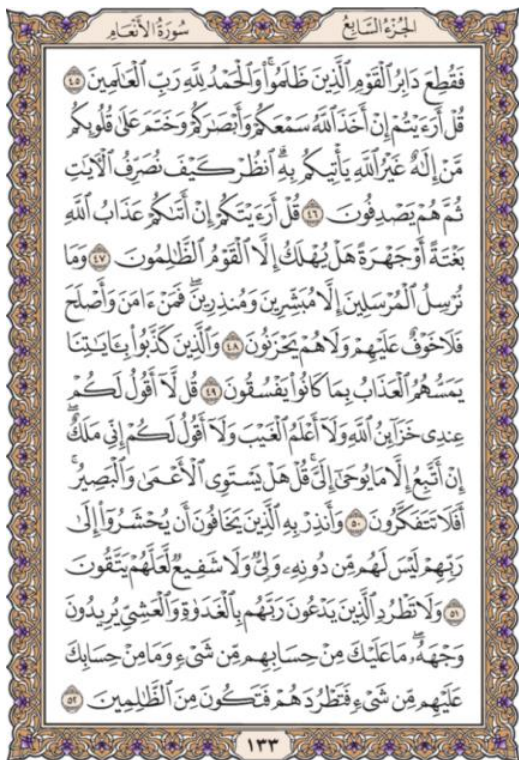 الجزء السابع سورة الأنعام
فَقُطِعَ دَابِرُ ٱلْقَوْمِ ٱلَّذِينَ ظَلَمُوا۟ۚ وَٱلْحَمْدُ لِلَّهِ رَبِّ ٱلْعَـٰلَمِينَ ٤٥
قُلْ أَرَءَيْتُمْ إِنْ أَخَذَ ٱللَّهُ سَمْعَكُمْ وَأَبْصَـٰرَكُمْ وَخَتَمَ عَلَىٰ قُلُوبِكُم
مَّنْ إِلَـٰهٌ غَيْرُ ٱللَّهِ يَأْتِيكُم بِهِۗ ٱنظُرْ كَيْفَ نُصَرِّفُ ٱلْـَٔايَـٰتِ
ثُمَّ هُمْ يَصْدِفُونَ ٤٦ قُلْ أَرَءَيْتَكُمْ إِنْ أَتَىٰكُمْ عَذَابُ ٱللَّهِ
بَغْتَةً أَوْ جَهْرَةً هَلْ يُهْلَكُ إِلَّا ٱلْقَوْمُ ٱلظَّـٰلِمُونَ ٤٧ وَمَا
نُرْسِلُ ٱلْمُرْسَلِينَ إِلَّا مُبَشِّرِينَ وَمُنذِرِينَۖ فَمَنْ ءَامَنَ وَأَصْلَحَ
فَلَا خَوْفٌ عَلَيْهِمْ وَلَا هُمْ يَحْزَنُونَ ٤٨ وَٱلَّذِينَ كَذَّبُوا۟ بِـَٔايَـٰتِنَا
يَمَسُّهُمُ ٱلْعَذَابُ بِمَا كَانُوا۟ يَفْسُقُونَ ٤٩ قُل لَّآ أَقُولُ لَكُمْ
عِندِى خَزَآئِنُ ٱللَّهِ وَلَآ أَعْلَمُ ٱلْغَيْبَ وَلَآ أَقُولُ لَكُمْ إِنِّى مَلَكٌۖ
إِنْ أَتَّبِعُ إِلَّا مَا يُوحَىٰٓ إِلَىَّۚ قُلْ هَلْ يَسْتَوِى ٱلْأَعْمَىٰ وَٱلْبَصِيرُۚ
أَفَلَا تَتَفَكَّرُونَ ٥٠ وَأَنذِرْ بِهِ ٱلَّذِينَ يَخَافُونَ أَن يُحْشَرُوٓا۟ إِلَىٰ
رَبِّهِمْۙ لَيْسَ لَهُم مِّن دُونِهِۦ وَلِىٌّ وَلَا شَفِيعٌ لَّعَلَّهُمْ يَتَّقُونَ
٥١ وَلَا تَطْرُدِ ٱلَّذِينَ يَدْعُونَ رَبَّهُم بِٱلْغَدَوٰةِ وَٱلْعَشِىِّ يُرِيدُونَ
وَجْهَهُۥۖ مَا عَلَيْكَ مِنْ حِسَابِهِم مِّن شَىْءٍ وَمَا مِنْ حِسَابِكَ
عَلَيْهِم مِّن شَىْءٍ فَتَطْرُدَهُمْ فَتَكُونَ مِنَ ٱلظَّـٰلِمِينَ ٥٢
١٣٣